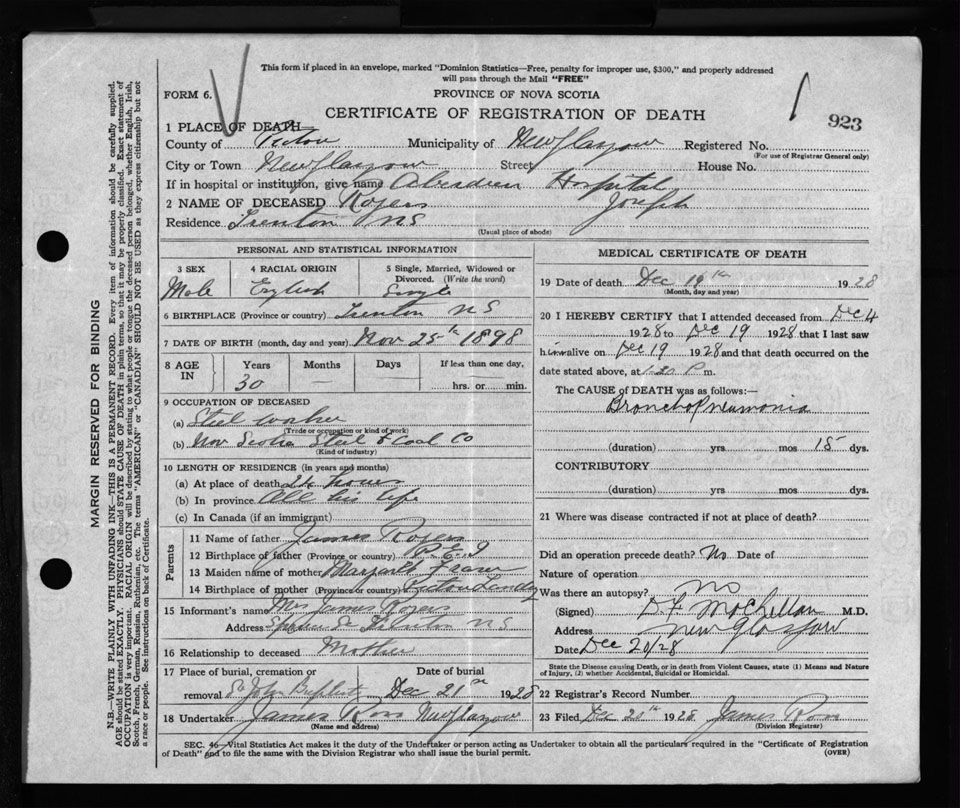 This form if placed in an envelope, marked "Dominion Statistics—Free, penalty for improper use, $300," and properly addressed
will pass through the Mail "FREE"
FORM 6.
PROVINCE OF NOVA SCOTIA
CERTIFICATE OF REGISTRATION OF DEATH
923
1 PLACE OF DEATH—
County of Pictou Municipality of New Glasgow Registered No.
(For use of Registrar General only)
City or Town New Glasgow Street House No.
If in hospital or institution, give name Aberdeen Hospital
2 NAME OF DECEASED Rogers Joseph
Residence Trenton NS
(Usual place of abode)
PERSONAL AND STATISTICAL INFORMATION
3 SEX 4 RACIAL ORIGIN 5 Single, Married, Widowed or Divorced. (Write the word)
Male English Single
6 BIRTHPLACE (Province or country) Trenton NS
7 DATE OF BIRTH (month, day and year) Nov 25th 1898
8 AGE IN Years Months Days If less than one day,
30 — hrs. or min.
9 OCCUPATION OF DECEASED
(a) Steel worker
(Trade or occupation or kind of work)
(b) Nova Scotia Steel & Coal Co
(Kind of industry)
10 LENGTH OF RESIDENCE (in years and months)
(a) At place of death hours
(b) In province All his life
(c) In Canada (if an immigrant)
Parents
11 Name of father James Rogers
12 Birthplace of father (Province or country) P.E.I
13 Maiden name of mother Margaret Fraser
14 Birthplace of mother (Province or country)
15 Informant's name Mrs James Rogers
Address Trenton NS
16 Relationship to deceased Mother
17 Place of burial, cremation or Date of burial
removal St John Baptist Dec 21st 1928
18 Undertaker James Ross New Glasgow
(Name and address)
MEDICAL CERTIFICATE OF DEATH
19 Date of death Dec 19th 1928
(Month, day and year)
20 I HEREBY CERTIFY that I attended deceased from Dec 4
1928 to Dec 19 1928 that I last saw
him alive on Dec 19 1928 and that death occurred on the
date stated above, at 1.30 P m.
The CAUSE of DEATH was as follows:—
Broncho Pneumonia
(duration) yrs mos 15 dys.
CONTRIBUTORY
(duration) yrs mos dys.
21 Where was disease contracted if not at place of death?
Did an operation precede death? No Date of
Nature of operation
Was there an autopsy? No
(Signed) McClellan M.D.
Address New Glasgow
Date Dec 20/28
State the Disease causing Death, or in death from Violent Causes, state (1) Means and Nature
of Injury, (2) whether Accidental, Suicidal or Homicidal.
22 Registrar's Record Number
23 Filed Dec 20th 1928 James Ross
(Division Registrar)
SEC. 46—Vital Statistics Act makes it the duty of the Undertaker or person acting as Undertaker to obtain all the particulars required in the "Certificate of Registration
of Death" and to file the same with the Division Registrar who shall issue the burial permit. (OVER)
MARGIN RESERVED FOR BINDING
N.B.—WRITE PLAINLY WITH UNFADING INK—THIS IS A PERMANENT RECORD. Every item of information should be carefully supplied.
AGE should be stated EXACTLY. PHYSICIANS should STATE CAUSE OF DEATH in plain terms, so that it may be properly classified. Exact statement of
OCCUPATION is very important. RACIAL ORIGIN will be described by stating to what people or tongue the deceased person belonged, whether English, Irish,
Scotch, French, German, Russian, Ruthenian, etc. The terms "AMERICAN" or "CANADIAN" SHOULD NOT BE USED as they express citizenship but not
a race or people. See instructions on back of Certificate.